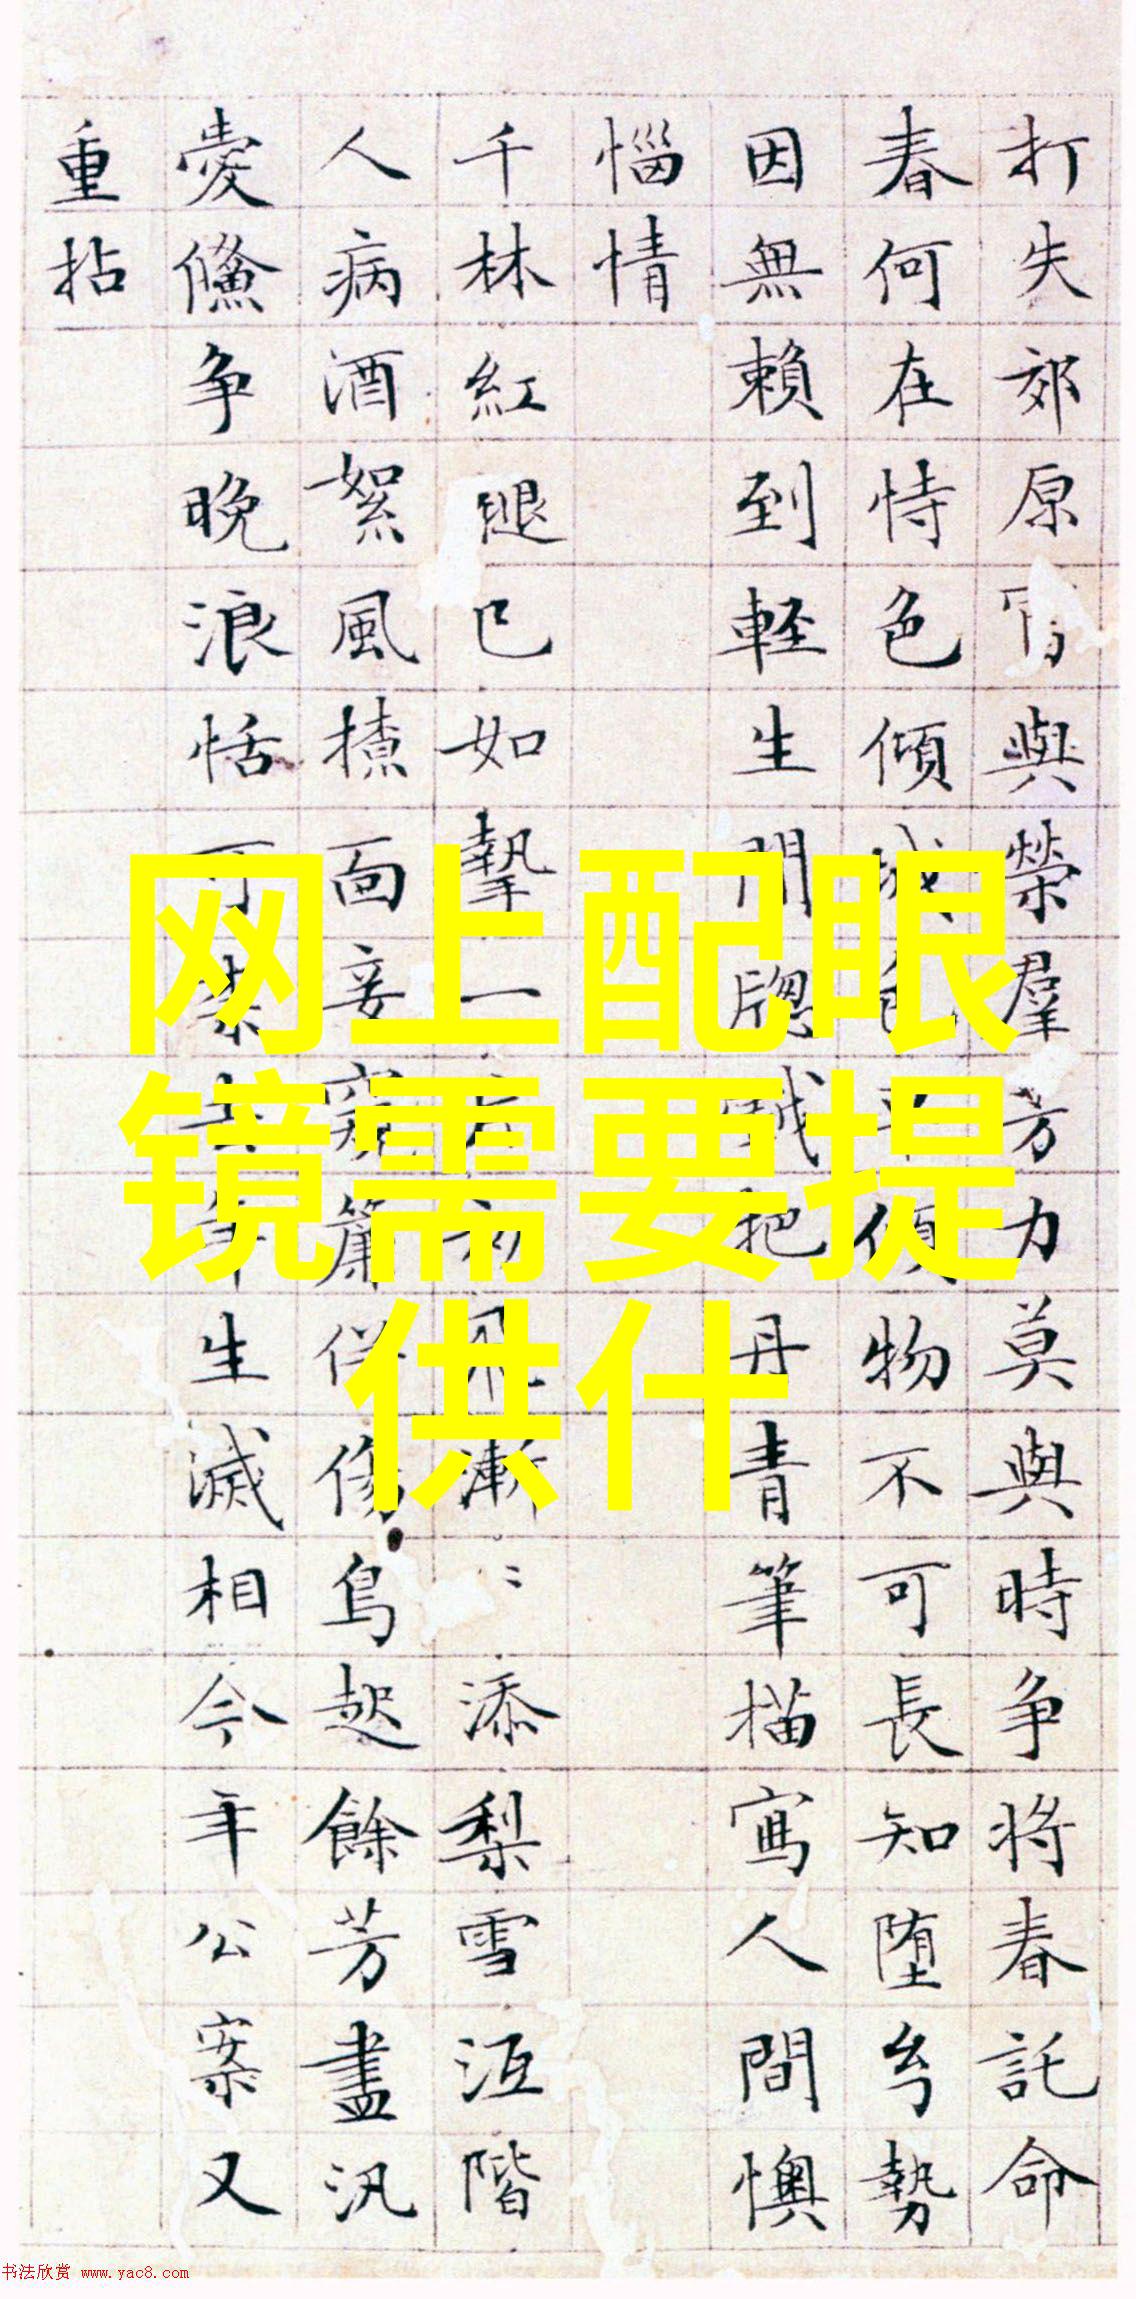 打失郊原與榮羣芳力莫與時争將春託命
春何在恃色傾城物不可長知堕勢
因無賴到輕生閒牕我把丹青筆描寫人間懊
惱情
千林紅腿已如摯一漸〻添梨雪沍階
人病酒絮風揸面妾窺簾伴傷鳥起餘芳盡汎
爱鯈争晚浪恬可生滅相今年公案又
重拈
网上配眼
镜需要提
供什
书法欣赏 www.yac8.com